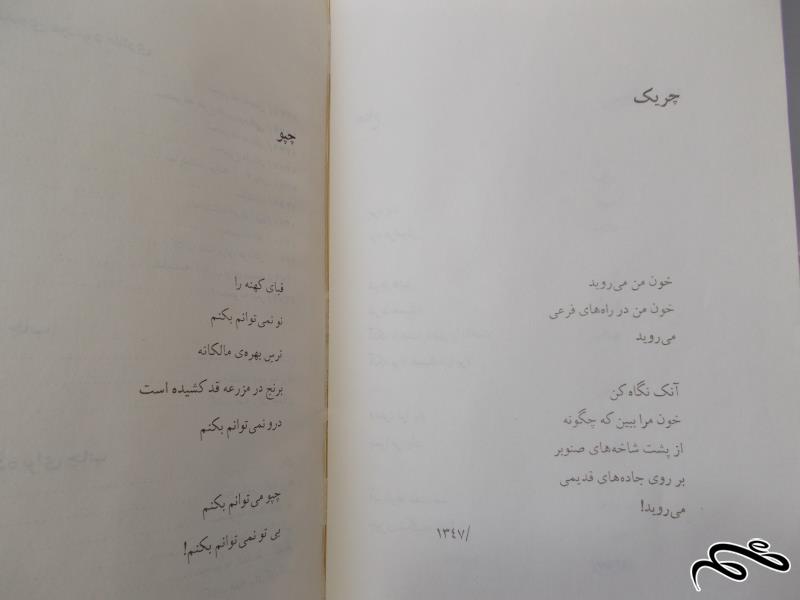 چریک
خون من می‌روید
خون من در راه‌های فرعی
می‌روید
آنک نگاه کن
خون مرا ببین که چگونه
از پشت شاخه‌های صنوبر
بر روی جاده‌های قدیمی
می‌روید!
/۱۳۴۷
چپو
قبای کهنه را
نو نمی‌توانم بکنم
ترس بهره‌ی مالکانه
برنج در مزرعه قد کشیده است
درو نمی‌توانم بکنم
چپو می‌توانم بکنم
بی تو نمی‌توانم بکنم!